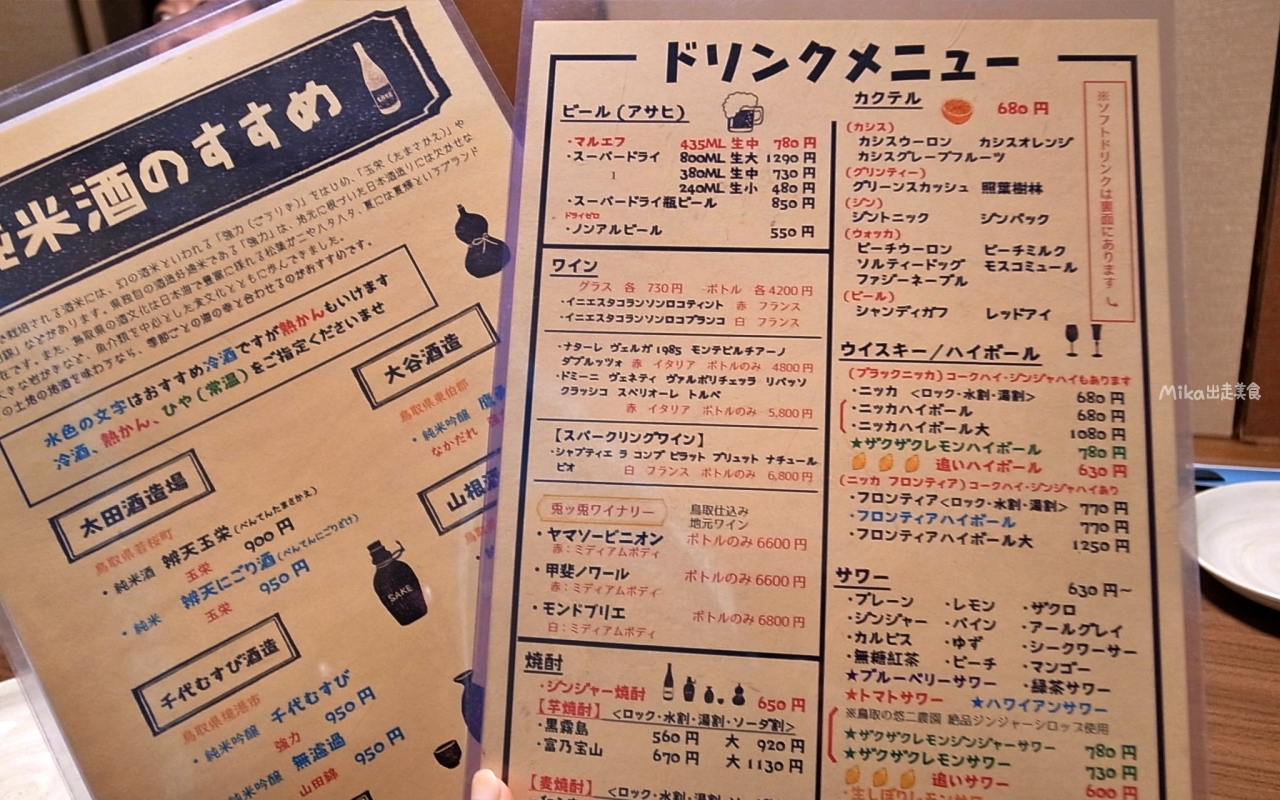 米酒のすすめ
水色の文字はおすすめ冷酒ですが熱かんもいけます
冷酒、熱かん、ひや(常温)をご指定くださいませ
太田酒造場
鳥取県若桜町
・純米酒 辨天玉栄(べんてんたまさかえ)
玉栄 900円
・純米 辨天にごり酒(べんてんにごりざけ)
玉栄 950円
千代むすび酒造
鳥取県境港市
・純米吟醸 千代むすび
強力 950円
純米吟醸 無濾過
山田錦 950円
大谷酒造
鳥取県東伯郡
・純米吟醸
なかだれ
SAKE
SAKE
ドリンクメニュー
ビール(アサヒ)
・マルエフ 435ML 生中 780円
・スーパードライ 800ML 生大 1290円
380ML 生中 730円
240ML 生小 480円
・スーパードライ瓶ビール 850円
ドライゼロ
・ノンアルビール 550円
ワイン
グラス 各 730円 ボトル 各4200円
・イニエスタコランソンロコティント 赤 フランス
・イニエスタコランソンロコブランコ 白 フランス
・ナターレ ヴェルガ 1985 モンテピルチアーノ
ダブルッツォ 赤 イタリア ボトルのみ 4800円
・ドミーニ ヴェネティ ヴァルポリチェッラ リパッソ
クラッシコ スペリオーレ トルベ
赤 イタリア ボトルのみ 5,800円
【スパークリングワイン】
・シャプティエ ラ コンブ ピラット ブリュット ナチュール
ビオ 白 フランス ボトルのみ 6,800円
兎ッ兎ワイナリー 鳥取仕込み
地元ワイン
・ヤマソービニオン ボトルのみ 6600円
赤:ミディアムボディ
・甲斐ノワール ボトルのみ 6600円
赤:ミディアムボディ
・モンドブリエ ボトルのみ 6800円
白:ミディアムボディ
焼酎
・ジンジャー焼酎 650円
【芋焼酎】 <ロック・水割・湯割・ソーダ割>
・黒霧島 560円 大 920円
・富乃宝山 670円 大 1130円
【麦焼酎】 <ロック・水割・湯割・ソーダ割>
カクテル 680円
(カシス)
カシスウーロン カシスオレンジ
カシスグレープフルーツ
(グリンティー)
グリーンスカッシュ 照葉樹林
(ジン)
ジントニック ジンバック
(ウォッカ)
ピーチウーロン ピーチミルク
ソルティードッグ モスコミュール
ファジーネーブル
(ビール)
シャンディガフ レッドアイ
※ソフトドリンクは裏面にあります
ウイスキー/ハイボール
(ブラックニッカ)コークハイ・ジンジャハイもあります
・ニッカ <ロック・水割・湯割> 680円
・ニッカハイボール 680円
・ニッカハイボール大 1080円
★ザクザクレモンハイボール 780円
追いハイボール 630円
(ニッカ フロンティア)コークハイ・ジンジャハイあり
・フロンティア<ロック・水割・湯割> 770円
・フロンティアハイボール 770円
・フロンティアハイボール大 1250円
サワー 630円~
・プレーン ・レモン ・ザクロ
・ジンジャー ・パイン ・アールグレイ
・カルピス ・ゆず ・シークワーサー
・無糖紅茶 ・ピーチ ・マンゴー
★ブルーベリーサワー ・緑茶サワー
★トマトサワー ★ハワイアンサワー
※鳥取の悠二農園 絶品ジンジャーシロップ使用
★ザクザクレモンジンジャーサワー 780円
★ザクザクレモンサワー 730円
追いサワー 600円
・生しぼりレモンサワー
Mika出走美食